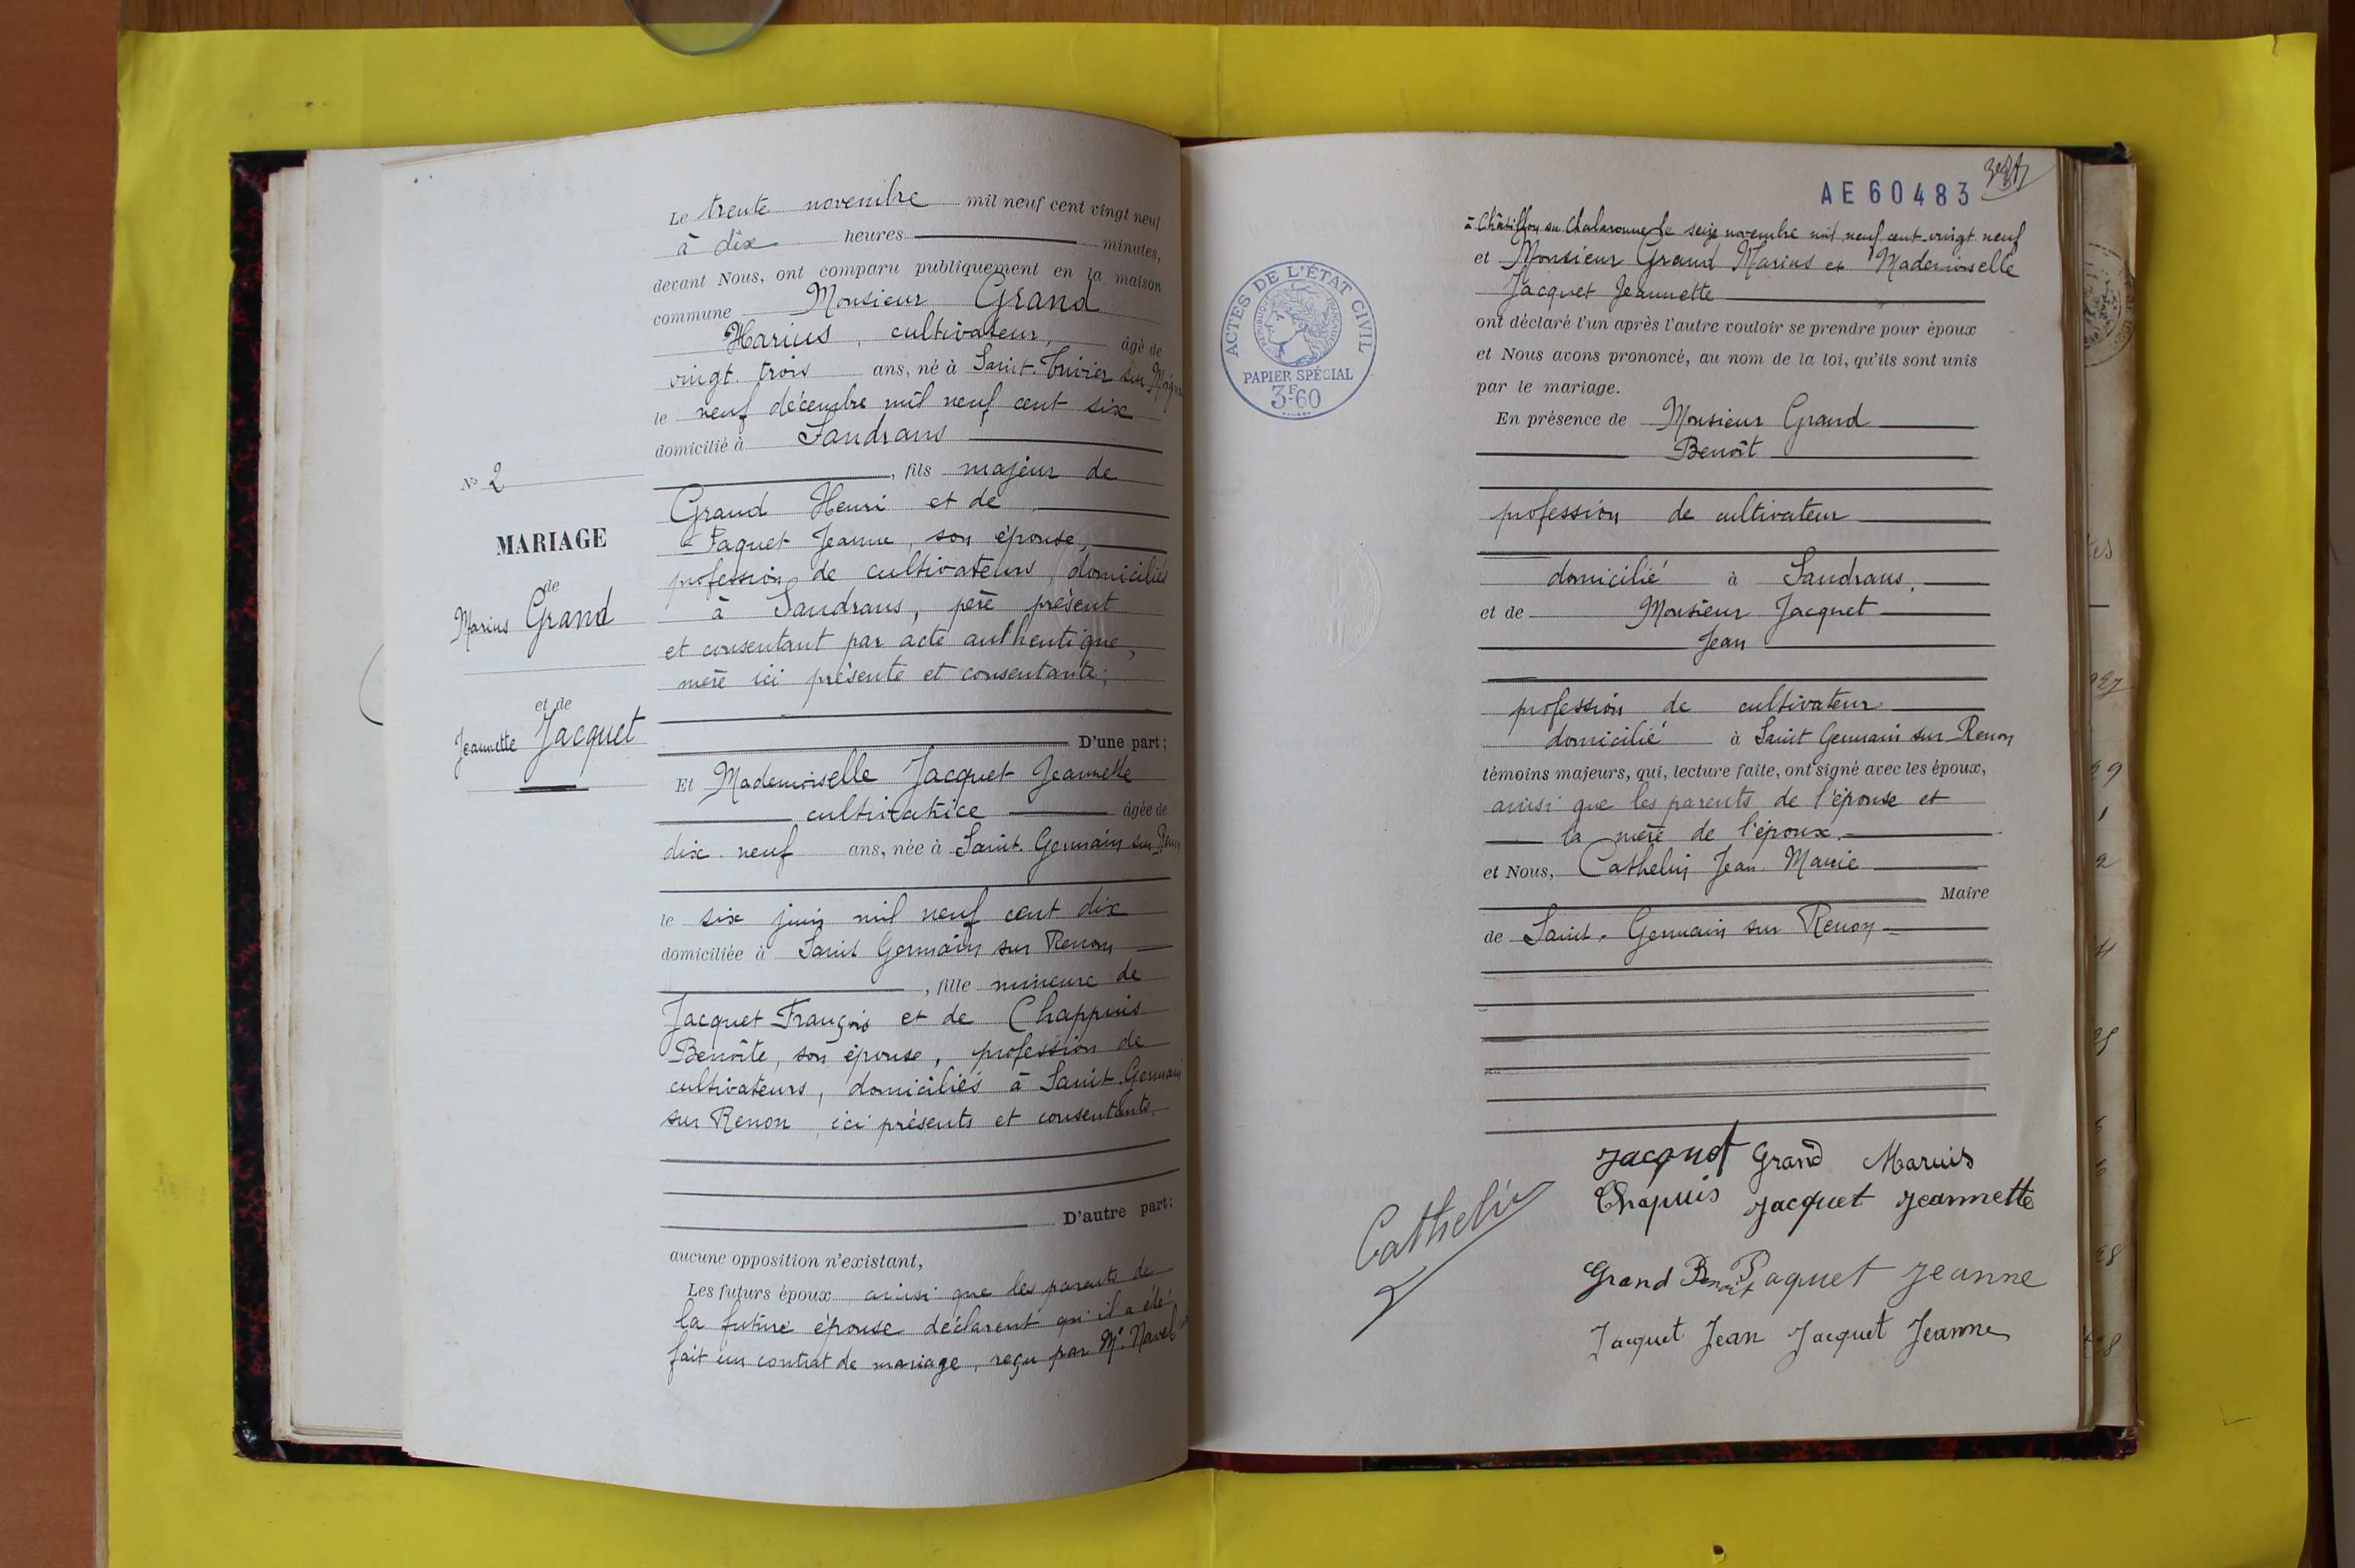 N° 2
MARIAGE
de
Marius Grand
et de
Jeannette Jacquet
Le trente novembre mil neuf cent vingt neuf
à dix heures minutes,
devant Nous, ont comparu publiquement en la maison
commune Monsieur Grand
Marius, cultivateur, âgé de
vingt trois ans, né à Saint. Trivier sur
le neuf décembre mil neuf cent six
domicilié à Sandrans
, fils majeur de
Grand Henri et de
Paquet Jeanne, son épouse,
profession de cultivateurs, domiciliés
à Sandrans, père présent
et consentant par acte authentique,
mère ici présente et consentante;
D'une part;
Et Mademoiselle Jacquet Jeannette
cultivatrice âgée de
dix. neuf ans, née à Saint. Germain sur Renon
le six juin mil neuf cent dix
domiciliée à Saint Germain sur Renon
, fille mineure de
Jacquet François et de Chappuis
Benoîte, son épouse, profession de
cultivateurs, domiciliés à Saint. Germain
sur Renon, ici présents et consentants.
D'autre part;
aucune opposition n'existant,
Les futurs époux ainsi que les parents de
la future épouse déclarent qu'il a été
fait un contrat de mariage, reçu par Me
AE 60483
à Châtillon sur Chalaronne le seize novembre mil neuf cent vingt neuf
et Monsieur Grand Marius et Mademoiselle
Jacquet Jeannette
ont déclaré l'un après l'autre vouloir se prendre pour époux
et Nous avons prononcé, au nom de la loi, qu'ils sont unis
par le mariage.
En présence de Monsieur Grand
Benoît
profession de cultivateur
domicilié à Sandrans.
et de Monsieur Jacquet
Jean
profession de cultivateur
domicilié à Saint Germain sur Renon
témoins majeurs, qui, lecture faite, ont signé avec les époux,
ainsi que les parents de l'épouse et
la mère de l'époux.
et Nous, Cathelin Jean Marie
Maire
de Saint. Germain sur Renon
ACTES DE L'ÉTAT CIVIL
RÉPUBLIQUE FRANÇAISE
PAPIER SPÉCIAL
3F60
Jacquet Grand Marius
Chapuis Jacquet Jeannette
Grand Benoit Paquet Jeanne
Jacquet Jean Jacquet Jeanne
Cathelin